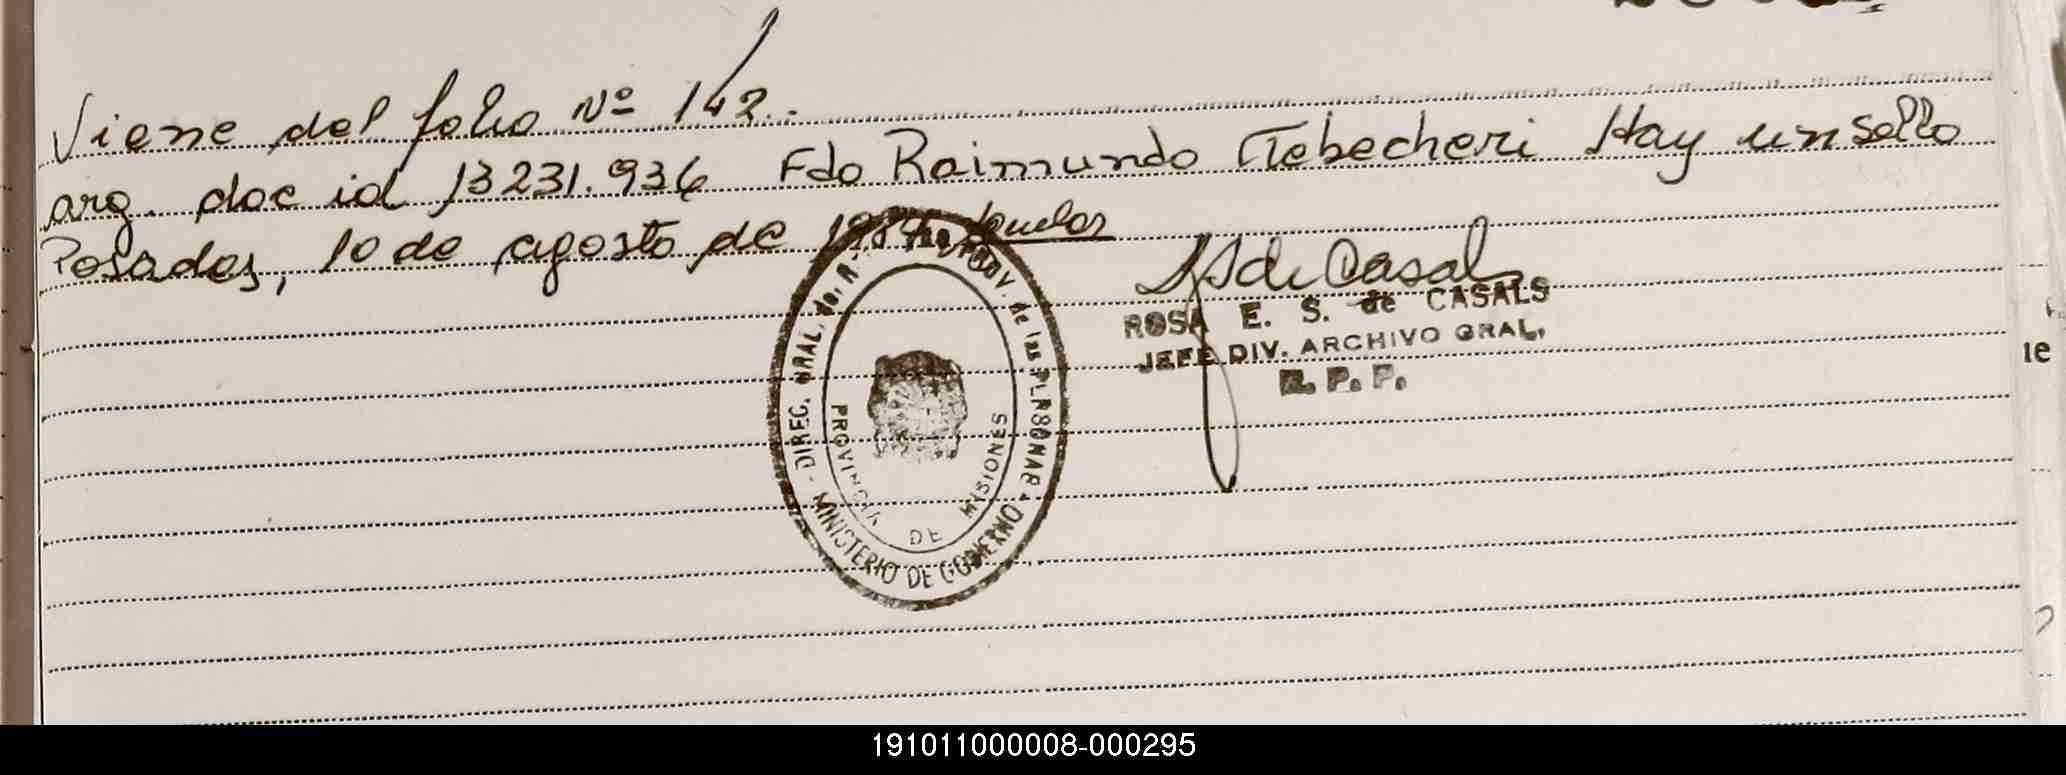 Viene del folio Nº 142.
arg. doc id 13231.936 Fdo Raimundo Tebecheri Hay un sello
Posadas, 10 de agosto de 1984
S de Casals
ROSA E. S. de CASALS
JEFE DIV. ARCHIVO GRAL.
R. P. P.
DIREC. GRAL. de las
MINISTERIO DE GOBIERNO
PROVINCIA DE MISIONES
ie
191011000008-000295